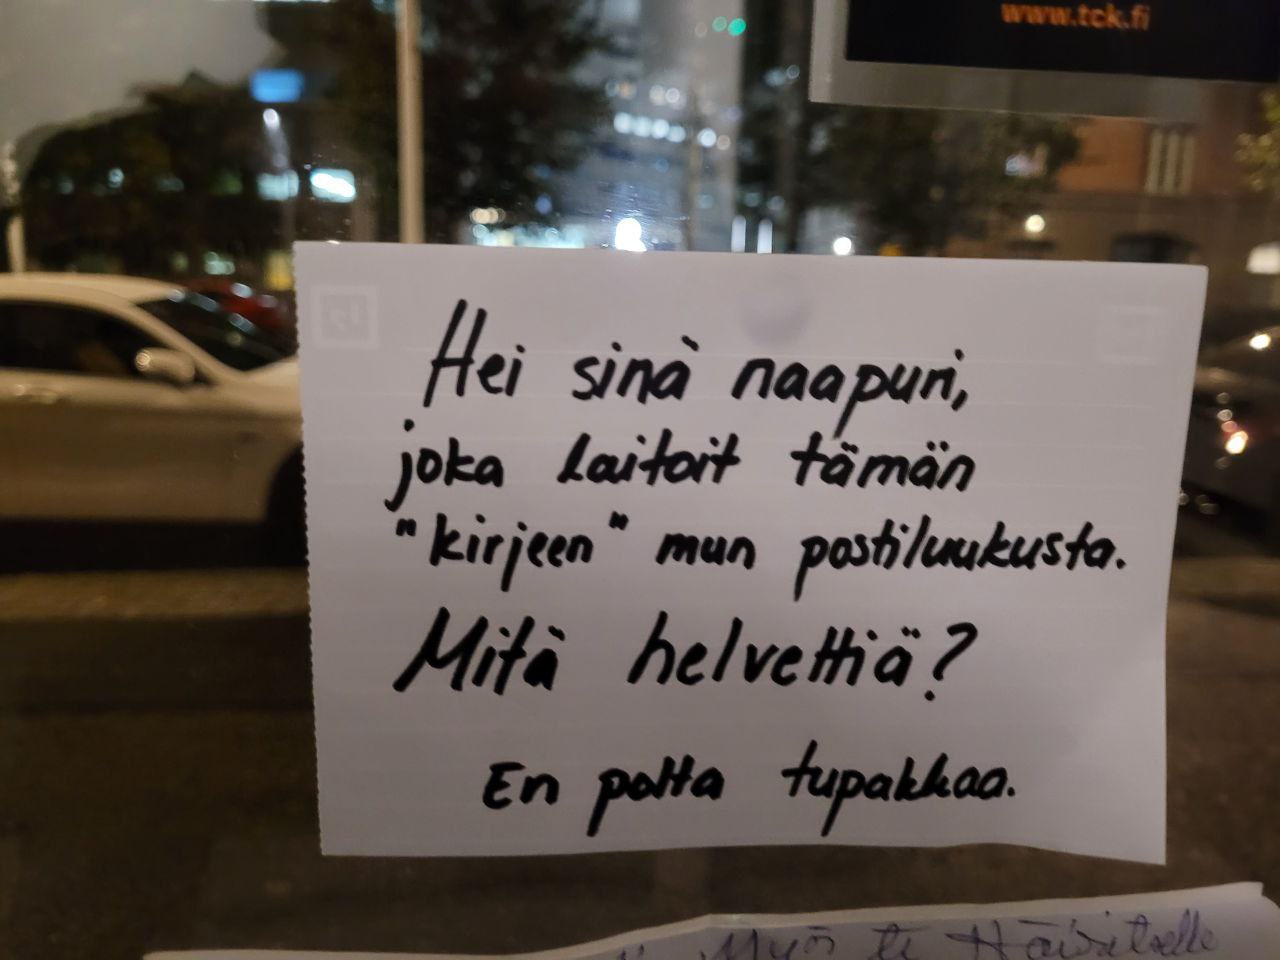 www.tck.fi
Hei sinä naapuri,
joka laitoit tämän
"kirjeen" mun postiluukusta.
Mitä helvettiä?
En polta tupakkaa.